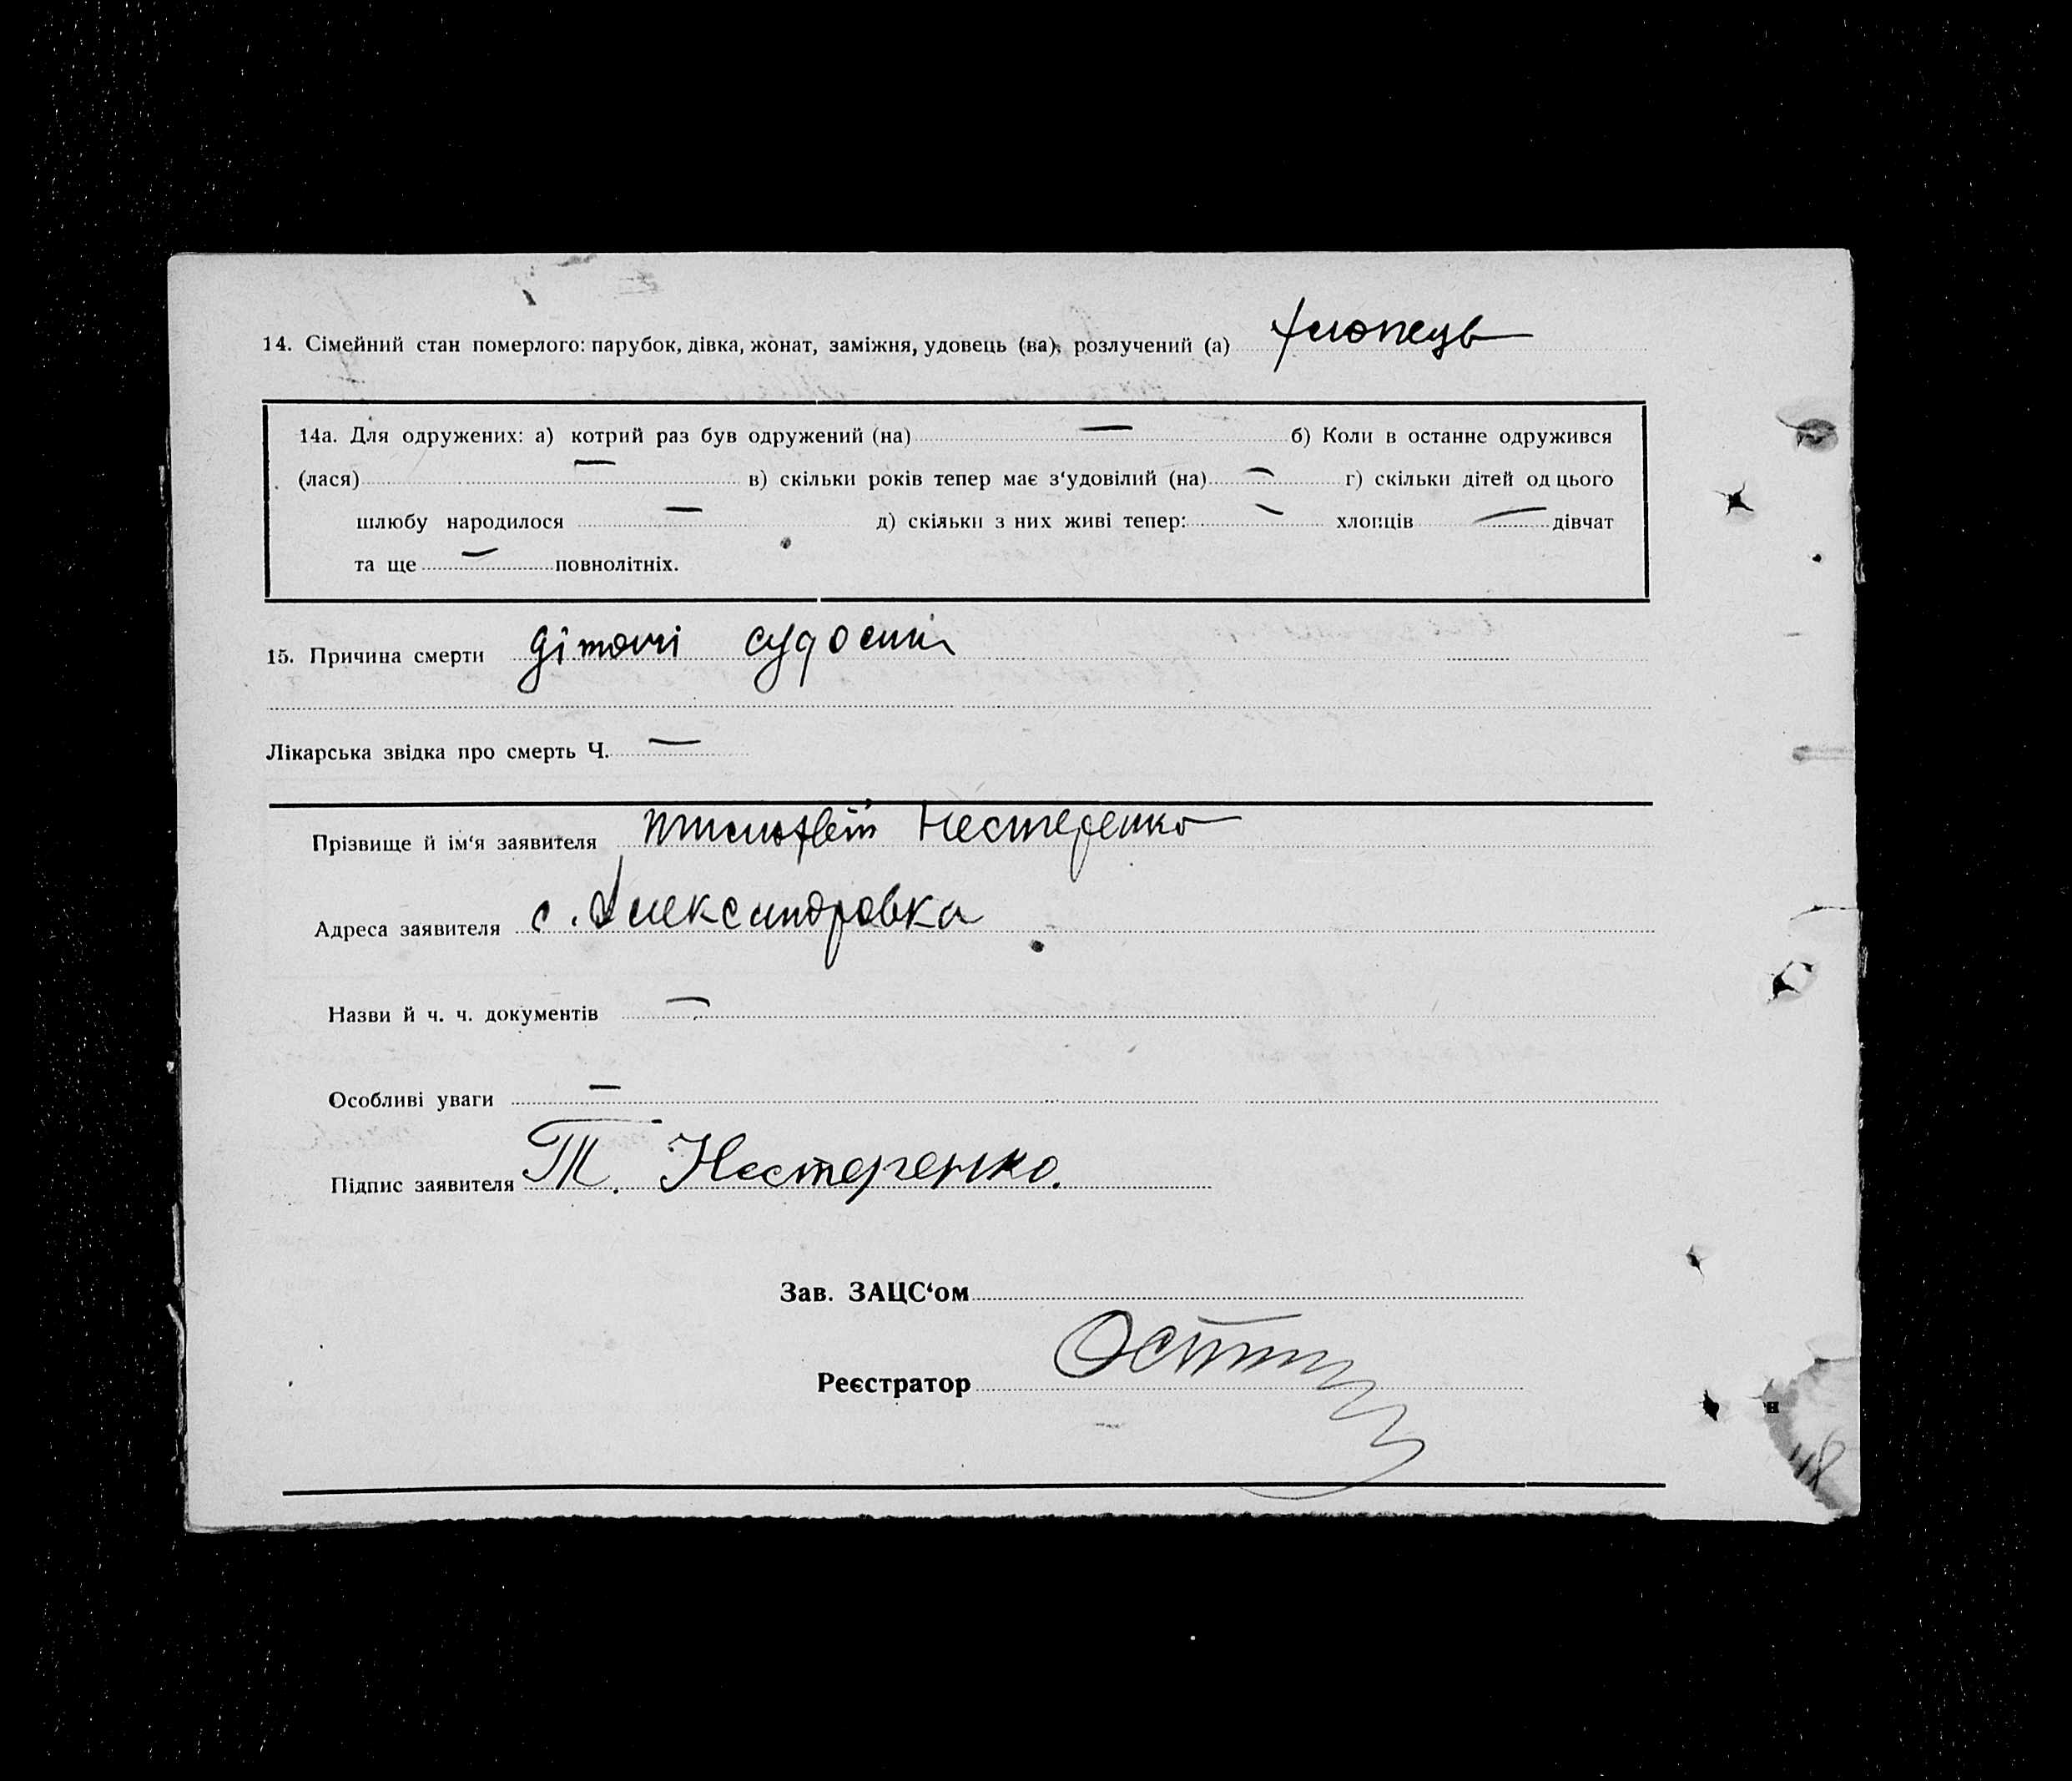 14. Сімейний стан померлого: парубок, дівка, жонат, заміжня, удовець (ва), розлучений (а) хлопець
14а. Для одружених: а) котрий раз був одружений (на) — б) Коли в останне одружився
(лася) — в) скільки років тепер має з‘удовілий (на) — г) скільки дітей од цього
шлюбу народилося — д) скільки з них живі тепер: — хлопців — дівчат
та ще — повнолітніх.
15. Причина смерти дітячі судоски
Лікарська звідка про смерть Ч. —
Прізвище й ім‘я заявителя Нестеренко
Адреса заявителя с. Александровка
Назви й ч. ч. документів —
Особливі уваги —
Підпис заявителя Т. Нестеренко.
Зав. ЗАЦС‘ом
Реєстратор